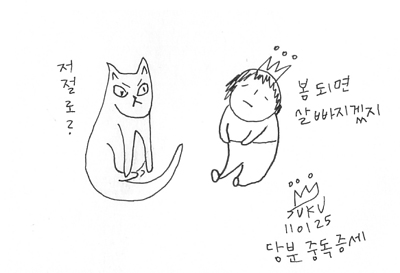 저절로?
봄 되면
살 빠지겠지
SUKU
110125
당분 중독증세